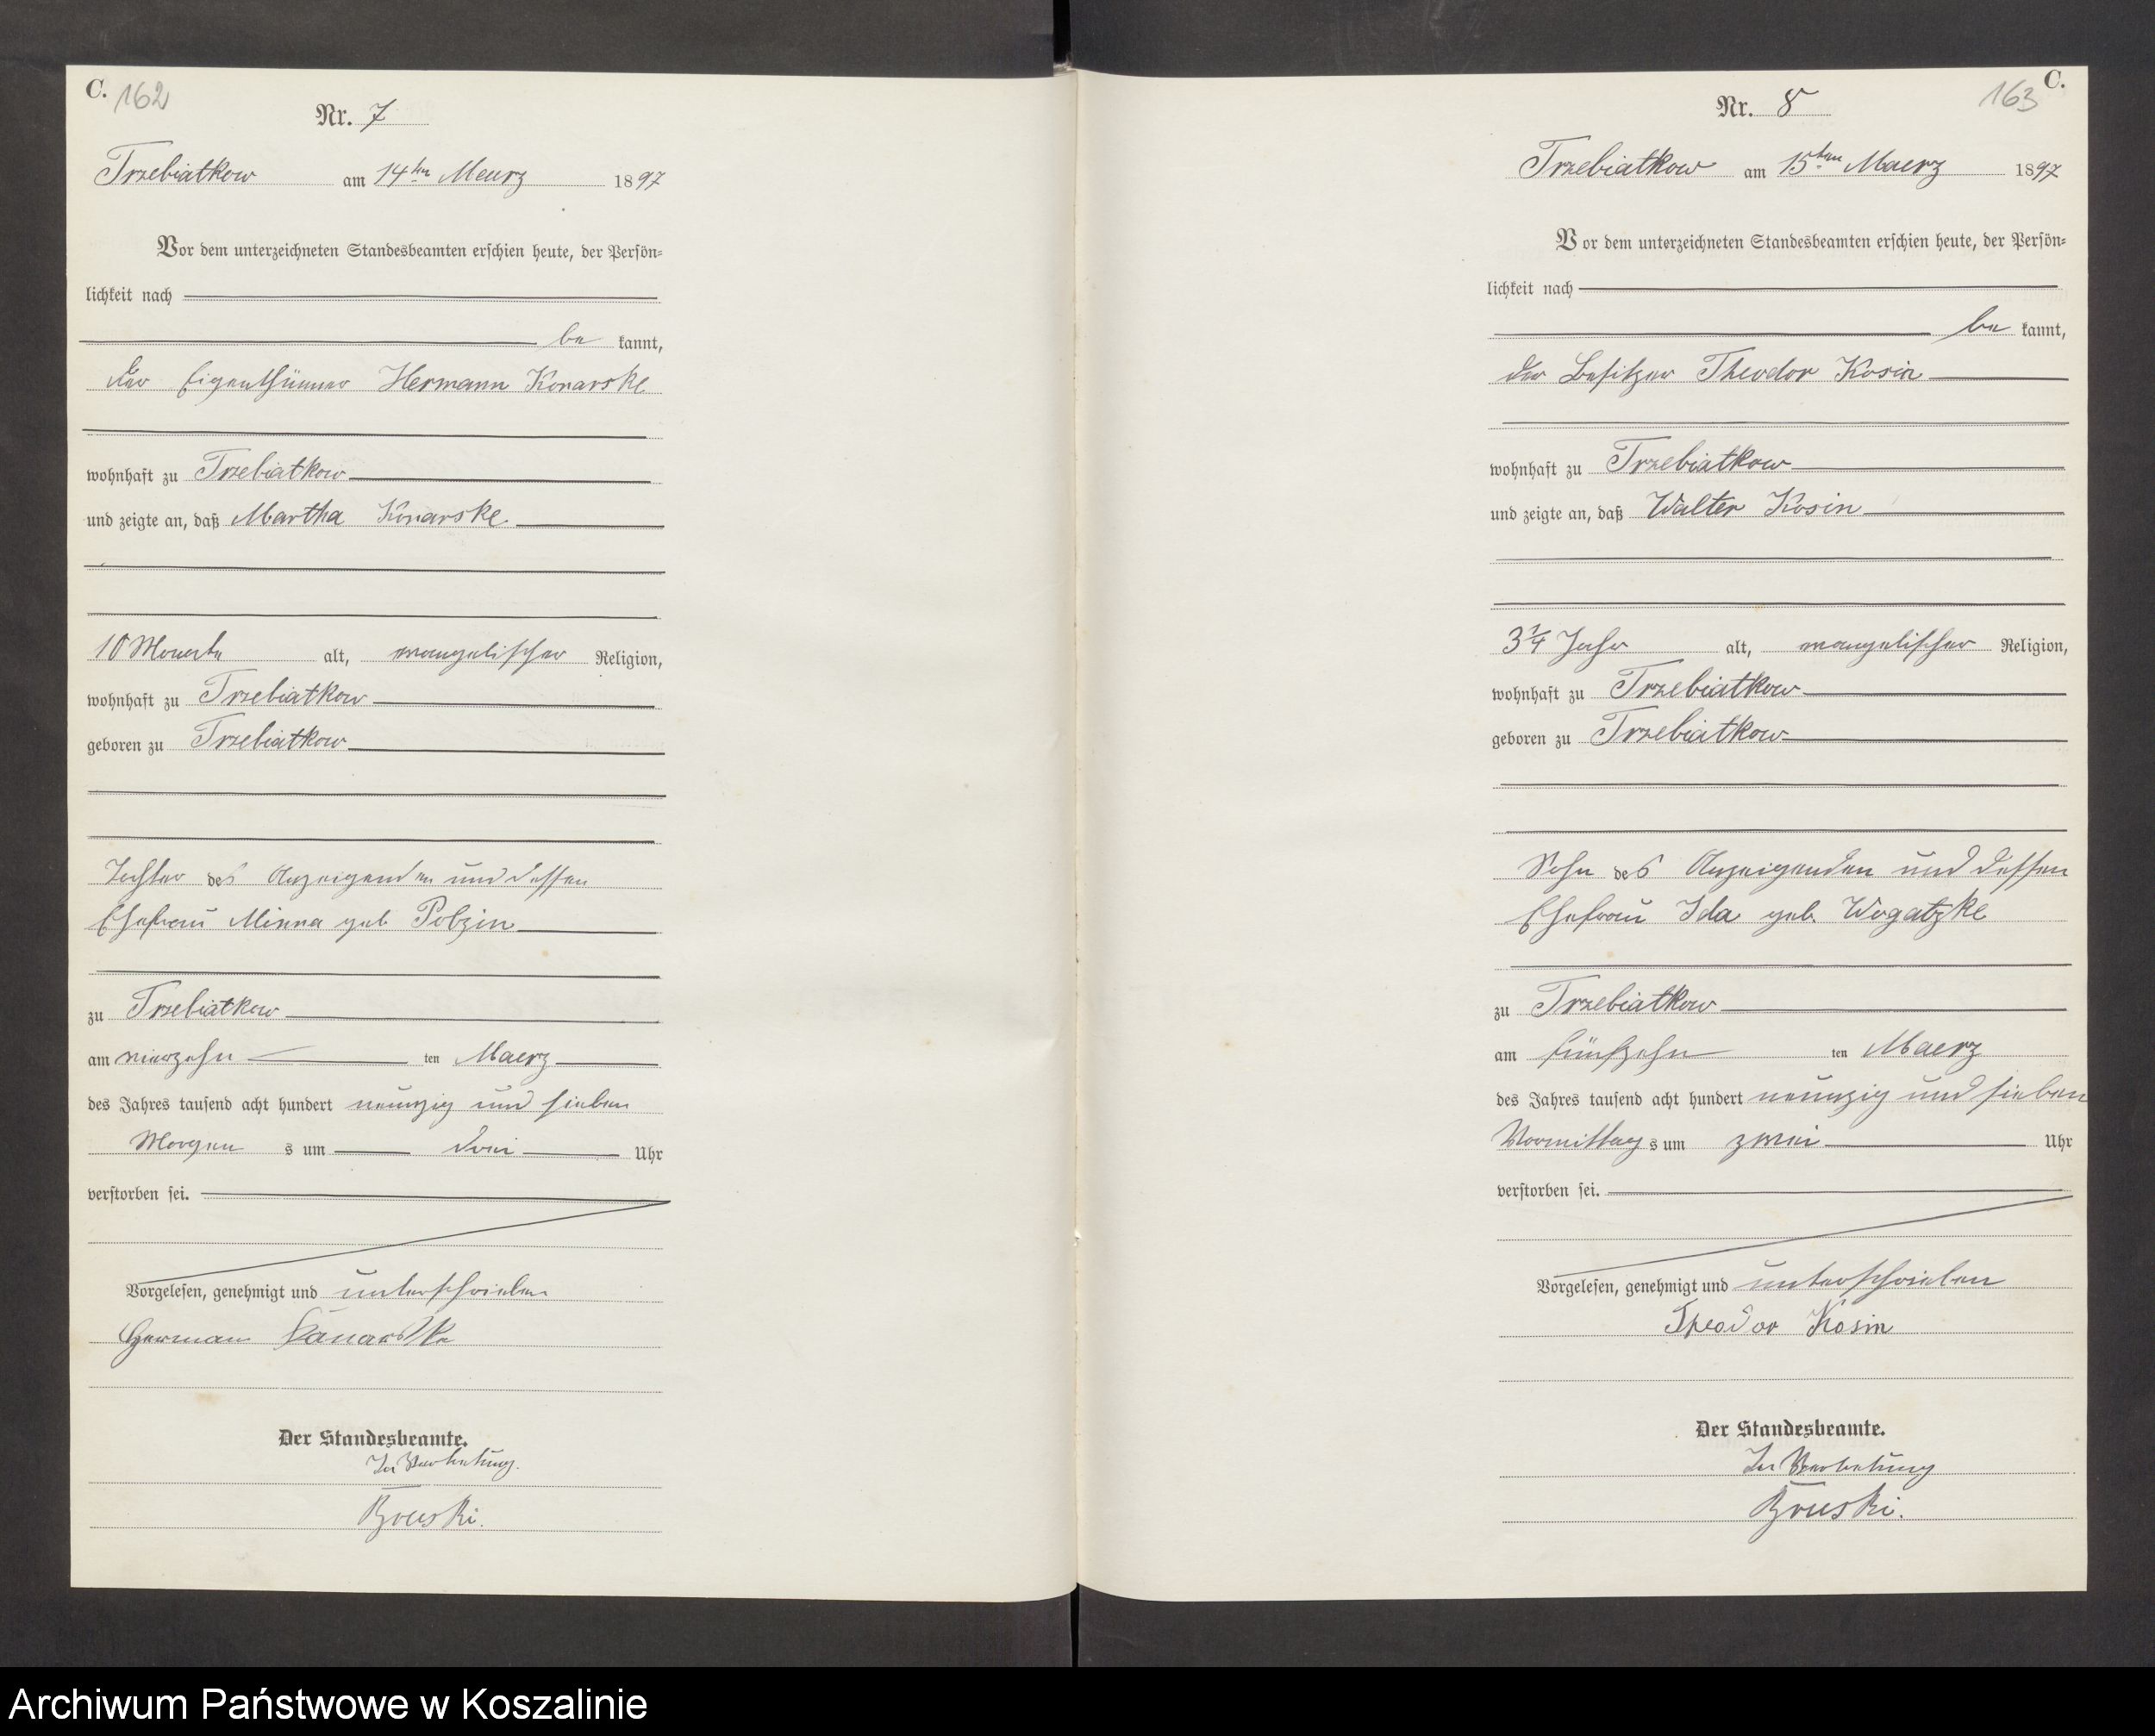 C. 162
Nr. 7
Trzebiatkow am 14ten Maerz 1897
Vor dem unterzeichneten Standesbeamten erschien heute, der Persön-
lichkeit nach
be kannt,
der Eigenthümer Hermann Konarske
wohnhaft zu Trzebiatkow
und zeigte an, daß Martha Konarske
10 Monate alt, evangelischer Religion,
wohnhaft zu Trzebiatkow
geboren zu Trzebiatkow
Tochter des Anzeigenden und dessen
Ehefrau Minna geb Polzin
zu Trzebiatkow
am vierzehn ten Maerz
des Jahres tausend acht hundert neunzig und sieben
Morgen s um drei Uhr
verstorben sei.
Vorgelesen, genehmigt und unterschrieben
Herman Kanarske
Der Standesbeamte.
In Vertretung.
Bruski.
163 C.
Nr. 8
Trzebiatkow am 15ten Maerz 1897
Vor dem unterzeichneten Standesbeamten erschien heute, der Persön-
lichkeit nach
be kannt,
der Besitzer Theodor Kosin
wohnhaft zu Trzebiatkow
und zeigte an, daß Walter Kosin
3 1/4 Jahr alt, evangelischer Religion,
wohnhaft zu Trzebiatkow
geboren zu Trzebiatkow
Sohn des Anzeigenden und dessen
Ehefrau Ida geb. Wogatzke
zu Trzebiatkow
am fünfzehn ten Maerz
des Jahres tausend acht hundert neunzig und sieben
Vormittag s um zwei Uhr
verstorben sei.
Vorgelesen, genehmigt und unterschrieben
Theodor Kosin
Der Standesbeamte.
In Vertretung
Bruski.
Archiwum Państwowe w Koszalinie